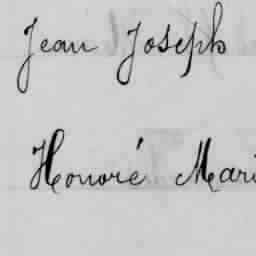 Jean Joseph
Honoré Mari